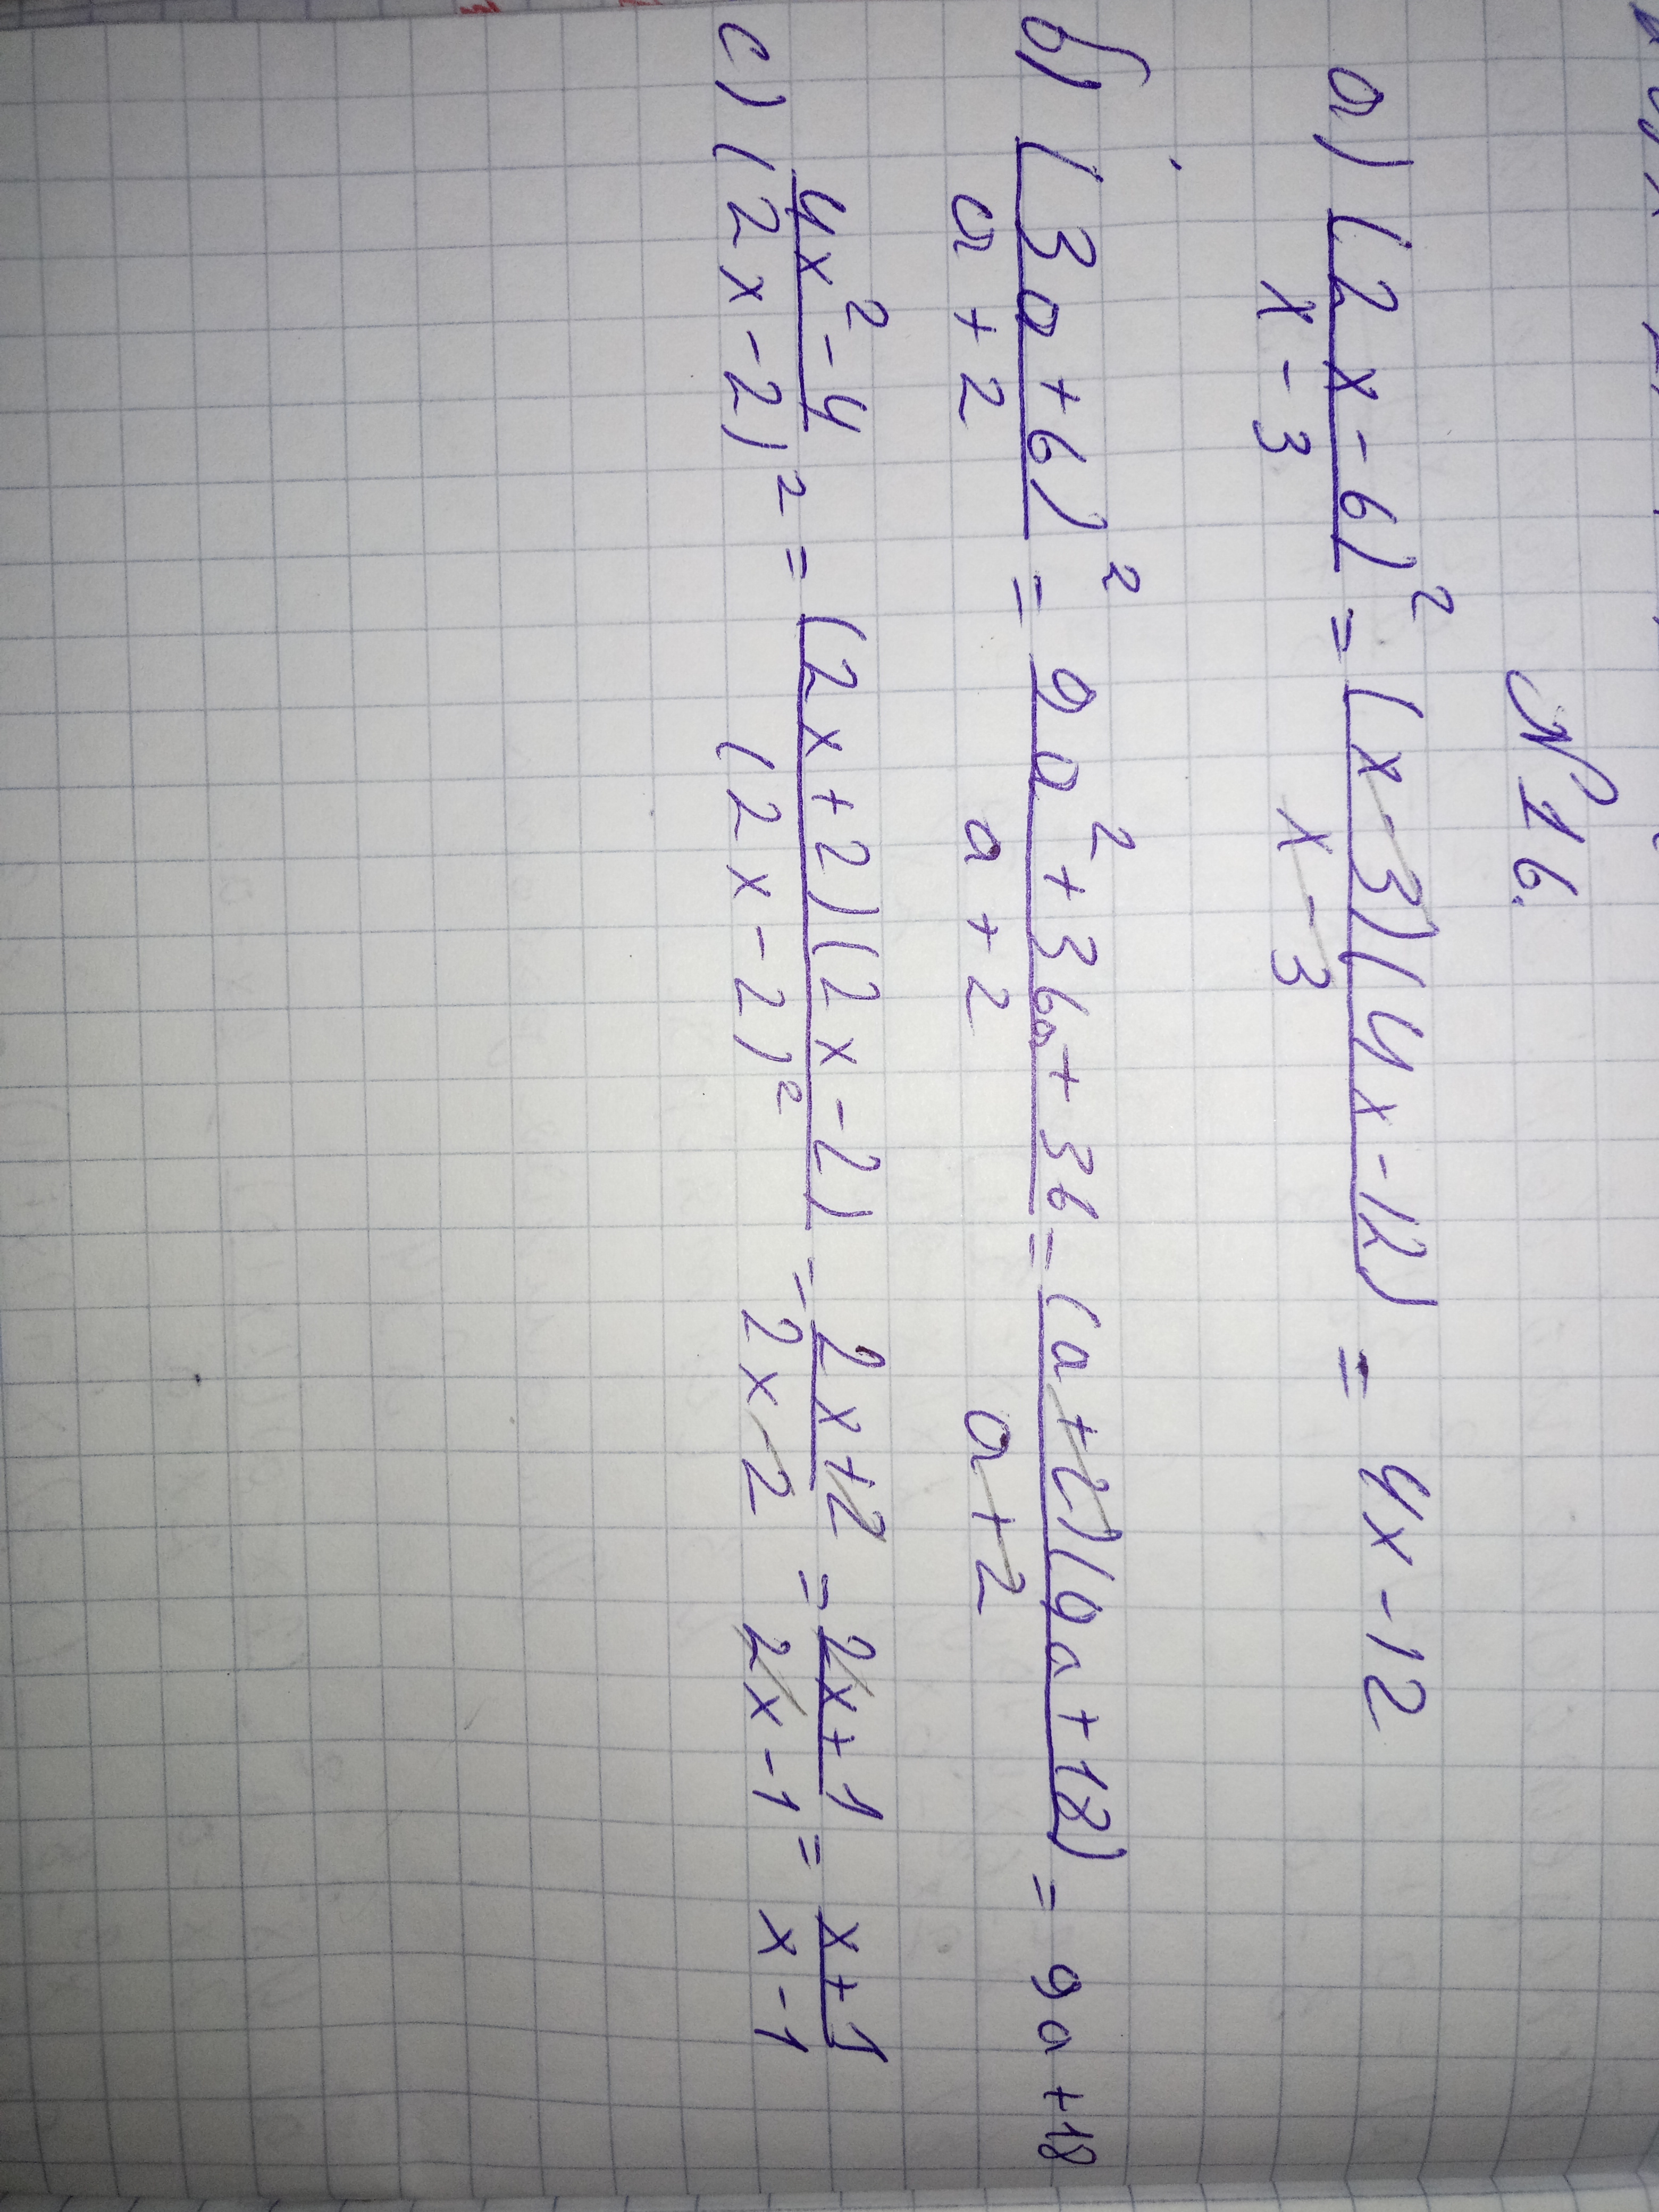 №16.
а) (2x-6)²/x-3 = (x-3)(4x-12)/x-3 = 4x-12
б) (3a+6)²/a+2 = 9a²+36a+36/a+2 = (a+2)(9a+18)/a+2 = 9a+18
с) 4x²-4/(2x-2)² = (2x+2)(2x-2)/(2x-2)² = 2x+2/2x-2 = 2x+1/2x-1 = x+1/x-1